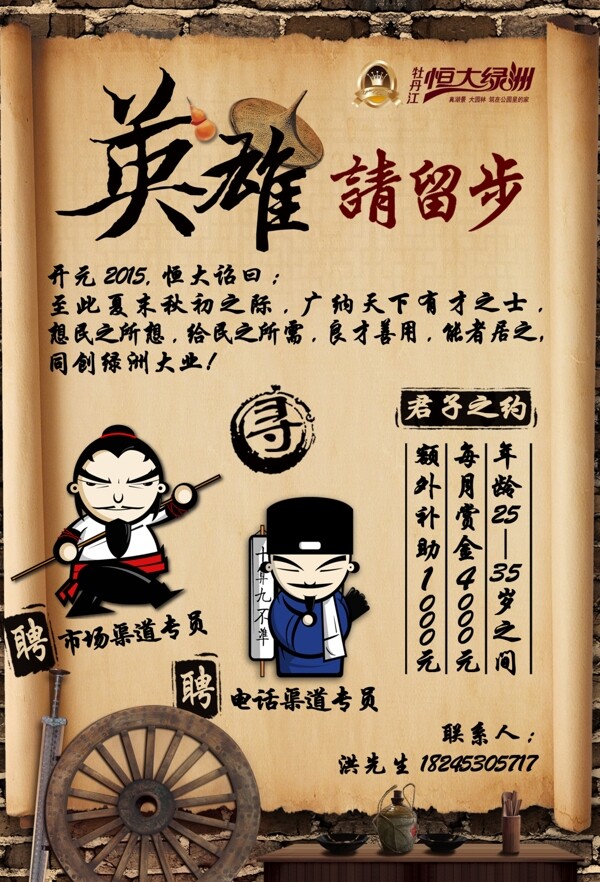 牡丹江
恒大绿洲
真湖景 大园林 筑在公园里的家
英雄
請留步
开元 2015, 恒大诏曰；
至此夏末秋初之际，广纳天下有才之士，
想民之所想，给民之所需，良才善用，能者居之，
同创绿洲大业！
寻
君子之约
年龄25—35岁之间
每月赏金4000元
额外补助1000元
十算九不準
聘
市场渠道专员
聘
电话渠道专员
联系人；
洪先生 18245305717